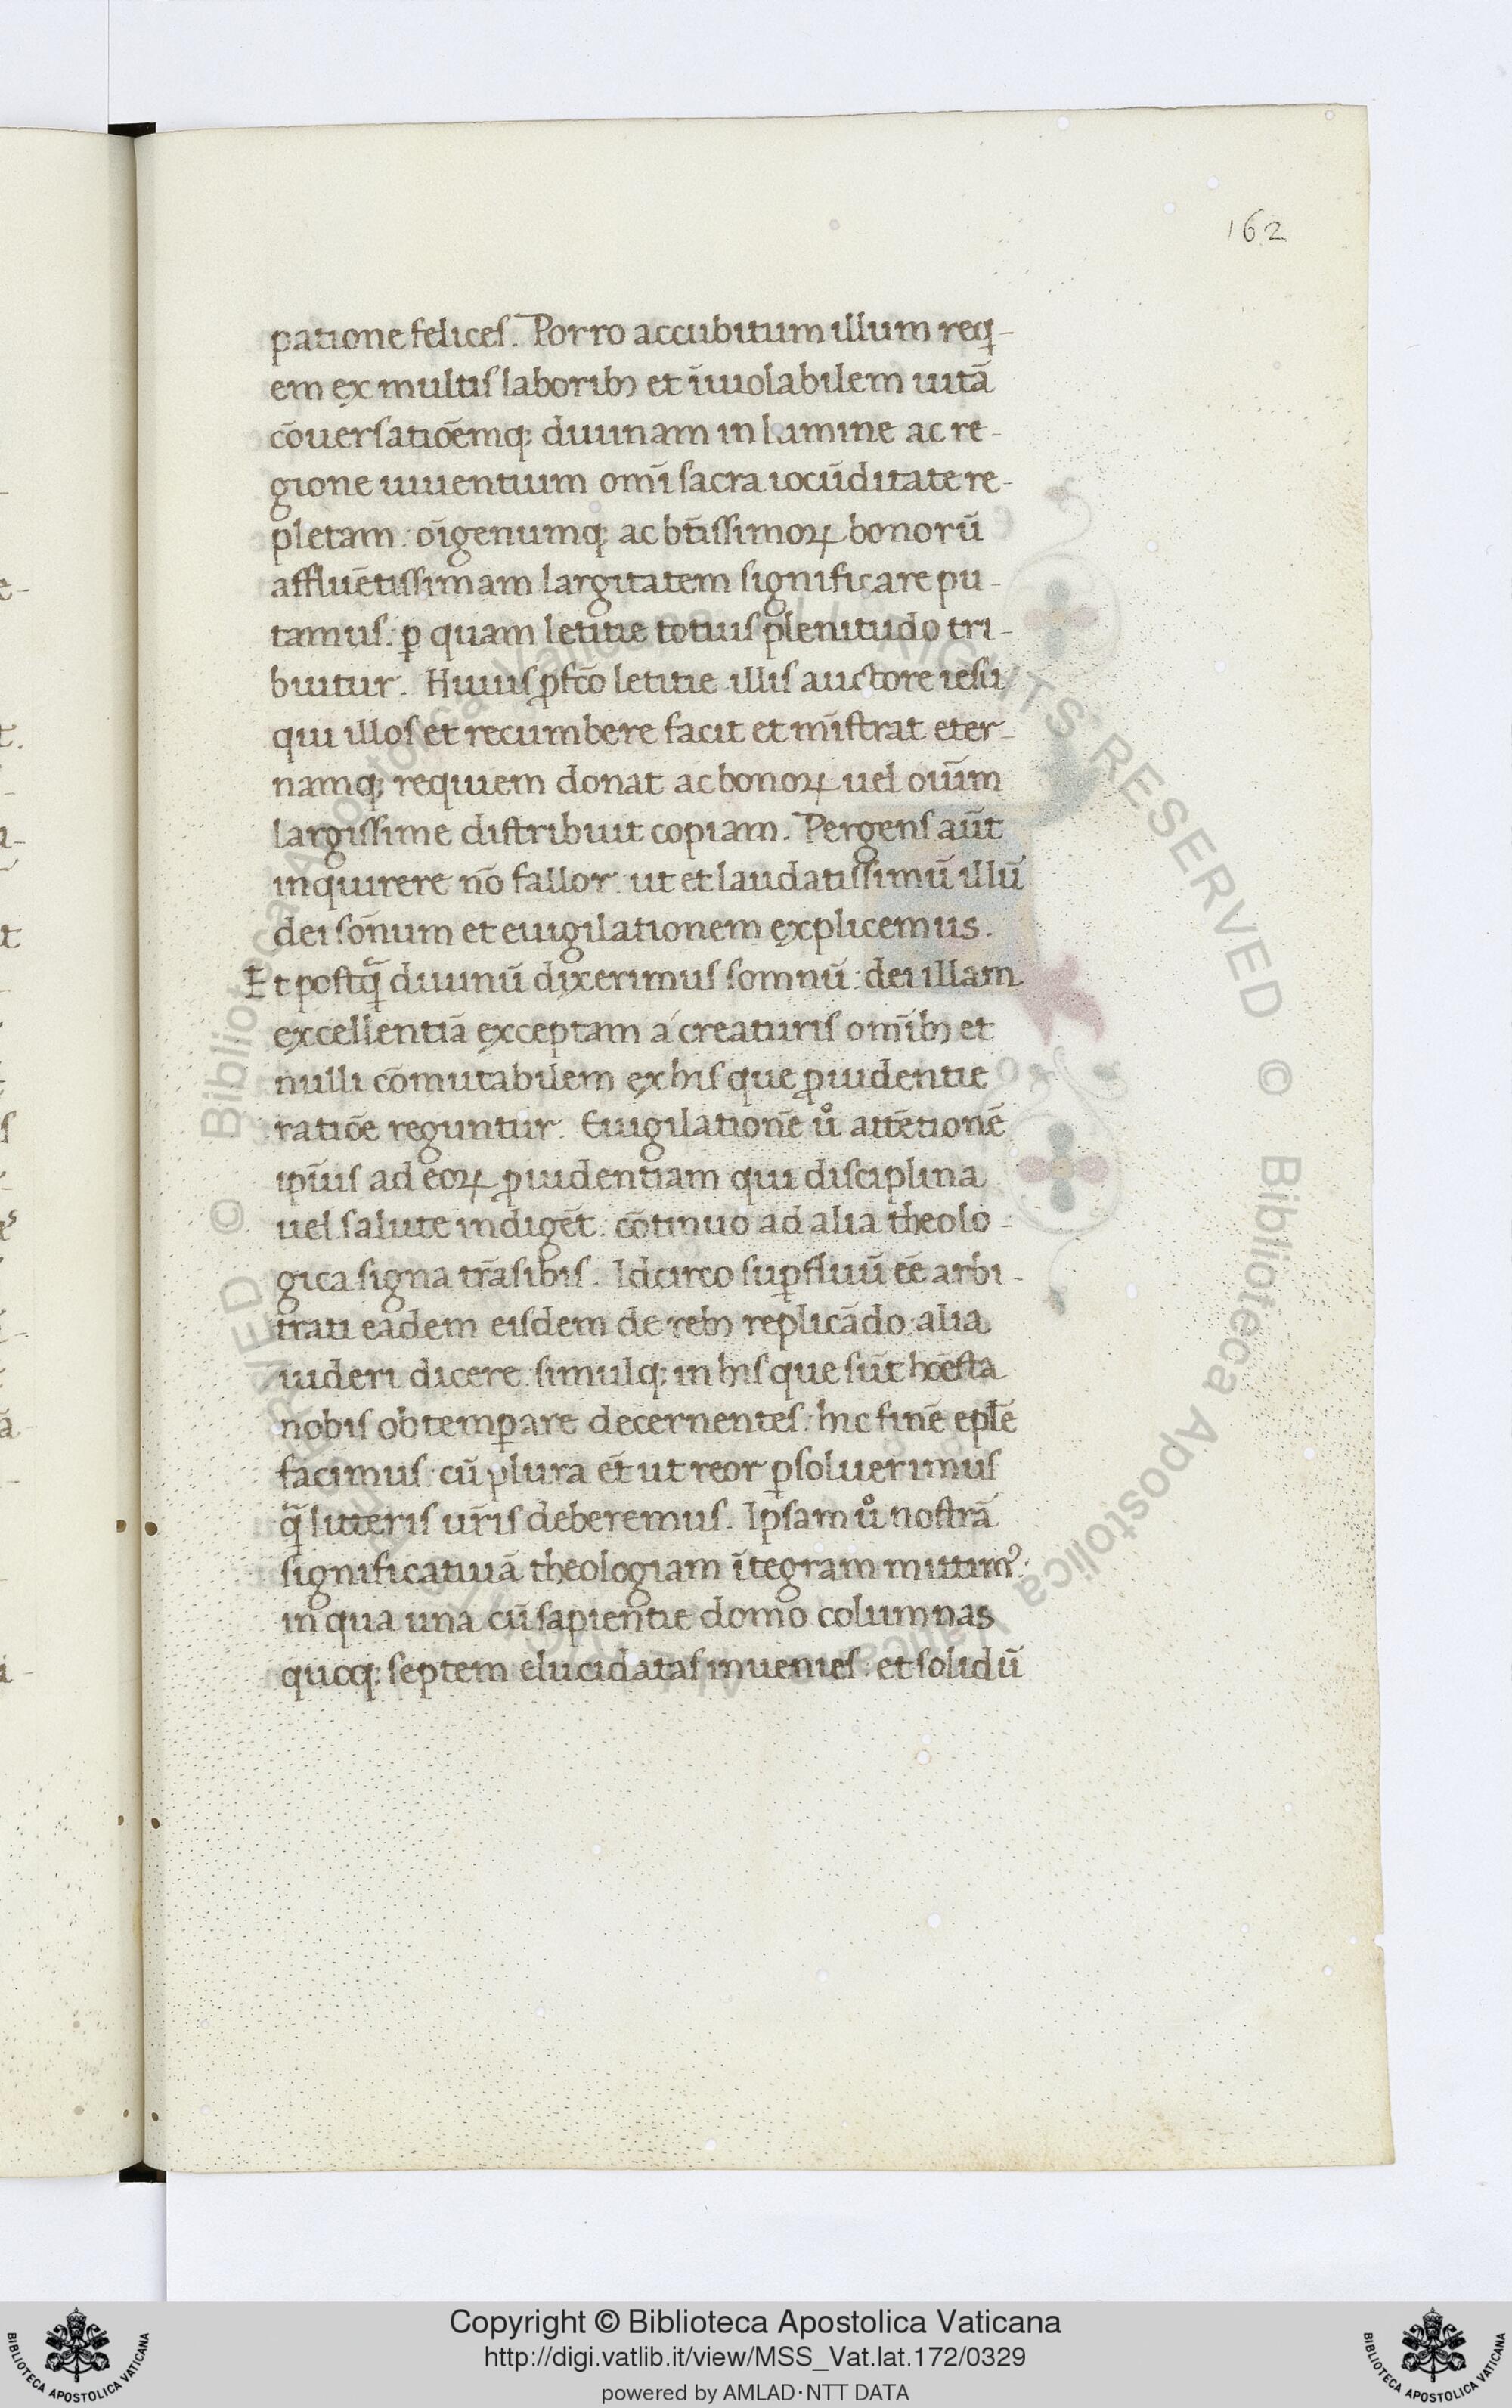 162
patione felices. Porro accubitum illum req̄-
em ex multis laboribꝫ et īuiolabilem uitā
cōuersatiōemqꝫ diuinam in lumine ac re-
gione uiuentium om̄i sacra iocūditate re-
pletam: oīgenumqꝫ ac bt̄issimoꝝ bonorū
affluētissimam largitatem significare pu-
tamus: ꝑ quam letitie totius plenitudo tri-
buitur. Huius ꝓfcō letitie illis auctore iesu
qui illos et recumbere facit et mīstrat eter-
namqꝫ requiem donat ac bonoꝝ uel ouīm
largissime distribuit copiam. Pergens aūt
inquirere nō fallor: ut et laudatissimū illū
dei sōnum et euigilationem explicemus.
Et postq̄ diuinū dixerimus somnū: dei illam
excellentiā exceptam a creaturis om̄ibꝫ et
nulli cōmutabilem ex his que ꝓuidentie
ratiōe reguntur. Euigilationē uͦ attētionē
ip̄ius ad eoꝝ ꝓuidentiam qui disciplina
uel salute indigēt: cōtinuo ad alia theolo-
gica signa trāsibis. Idcirco suꝑfluū eē arbi-
trati eadem eisdem de rebꝫ replicādo: alia
uideri dicere: simulqꝫ in his que sūt hōesta
nobis obtemꝑare decernentes: hic finē epl̄e
facimus: cū plura ēt ut reor ꝑsoluerimus
q̄ litteris ur̄is deberemus. Ipsam uͦ nostrā
significatiuā theologiam ītegram mittimꝰ:
in qua una cū sapientie domo columnas
quoqꝫ septem elucidatas inuenies: et solidū
Copyright © Biblioteca Apostolica Vaticana
http://digi.vatlib.it/view/MSS_Vat.lat.172/0329
powered by AMLAD·NTT DATA